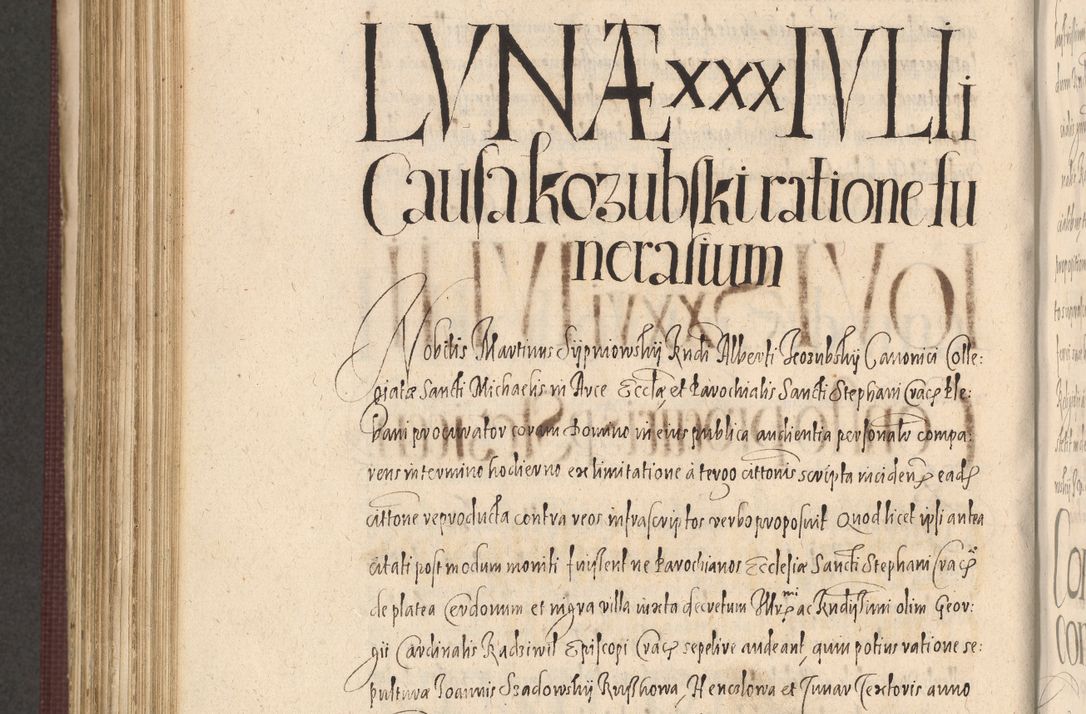 LVNÆ xxx IVLIi
Causa kozubski ratione fu
neralium
Nobilis Martinus Sijpniowskij Rndi Alberti Kozubskij Canonici Colle:
giatæ Sancti Michaelis in Arce Ecclæ et Parochialis Sancti Stephani Crac Ple:
bani procurator coram Domino in eius publica audientia personalr compa:
rens in termino hodierno ex limitatione à tergo cittonis scripta inciden ead
cittone reproducta contra reos infrascriptos verbo proposuit Quod licet ipsi antea
citati post modum moniti fuissent ne Parochianos Ecclesiæ Sancti Stephani Crac
de platea Cerdonum et nigra villa iuxta decretum Illrmi ac Rndissimi olim Geor:
gii Cardinalis Radziwil Episcopi Crac sepelire audeant, quin potius ratione se:
pulturæ Joannis Szadowskij Ruskowa, Henclowa et Junar Textoris anno